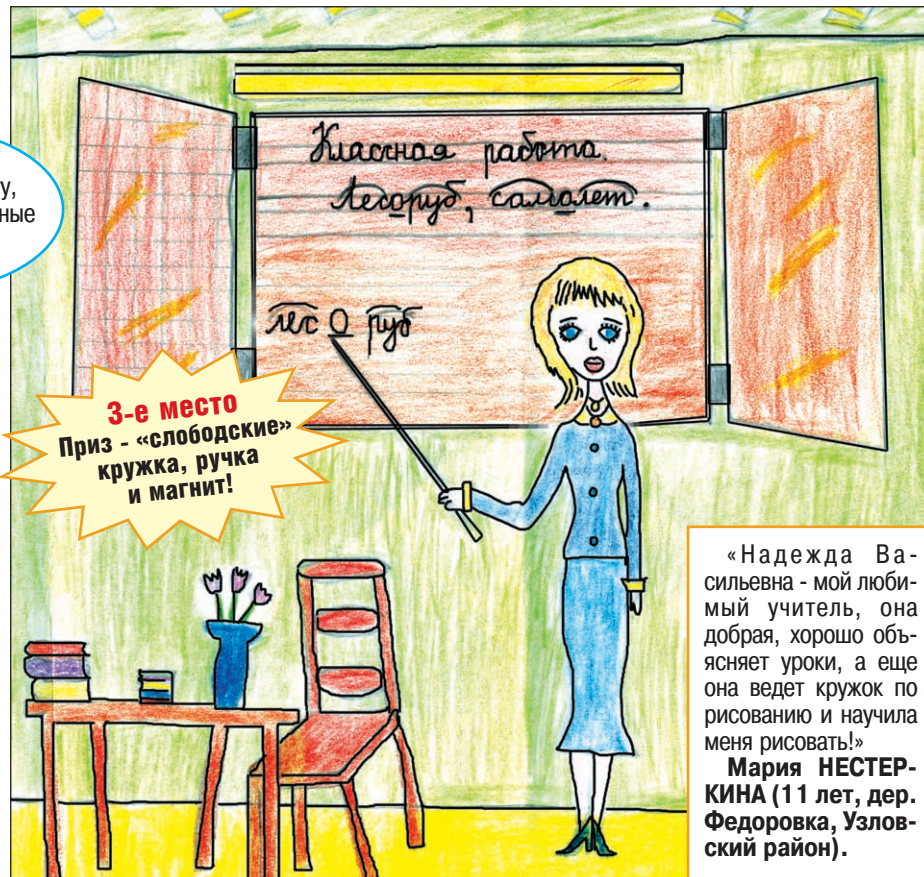 у,
ные
Классная работа.
Лесоруб, самолет.
лес о руб
3-е место
Приз - «слободские»
кружка, ручка
и магнит!
«Надежда Ва-
сильевна - мой люби-
мый учитель, она
добрая, хорошо объ-
ясняет уроки, а еще
она ведет кружок по
рисованию и научила
меня рисовать!»
Мария НЕСТЕР-
КИНА (11 лет, дер.
Федоровка, Узлов-
ский район).